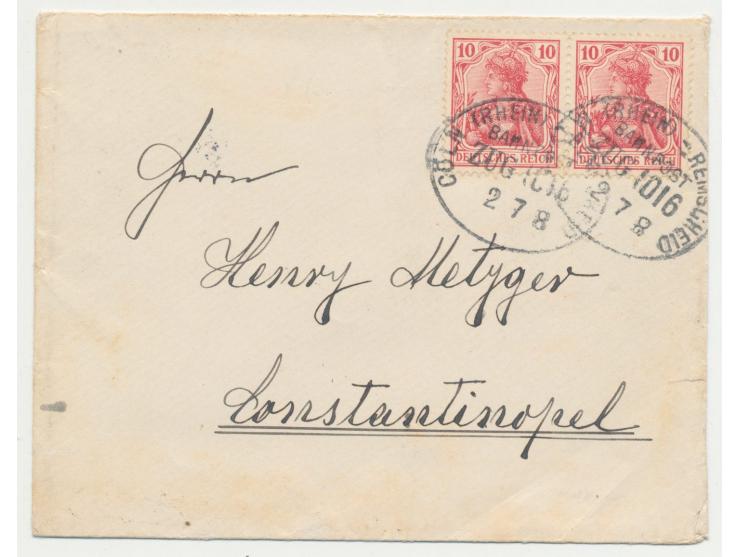 10 10 10 10
DEUTSCHES REICH DEUTSCHES REICH
CÖLN (RHEIN)
BAHNPOST
ZUG 1016
2 7 8
(RHEIN) - REMSCHEID
BAHNPOST
ZUG 1016
2 7 8
Herrn
Henry Metzger
Constantinopel